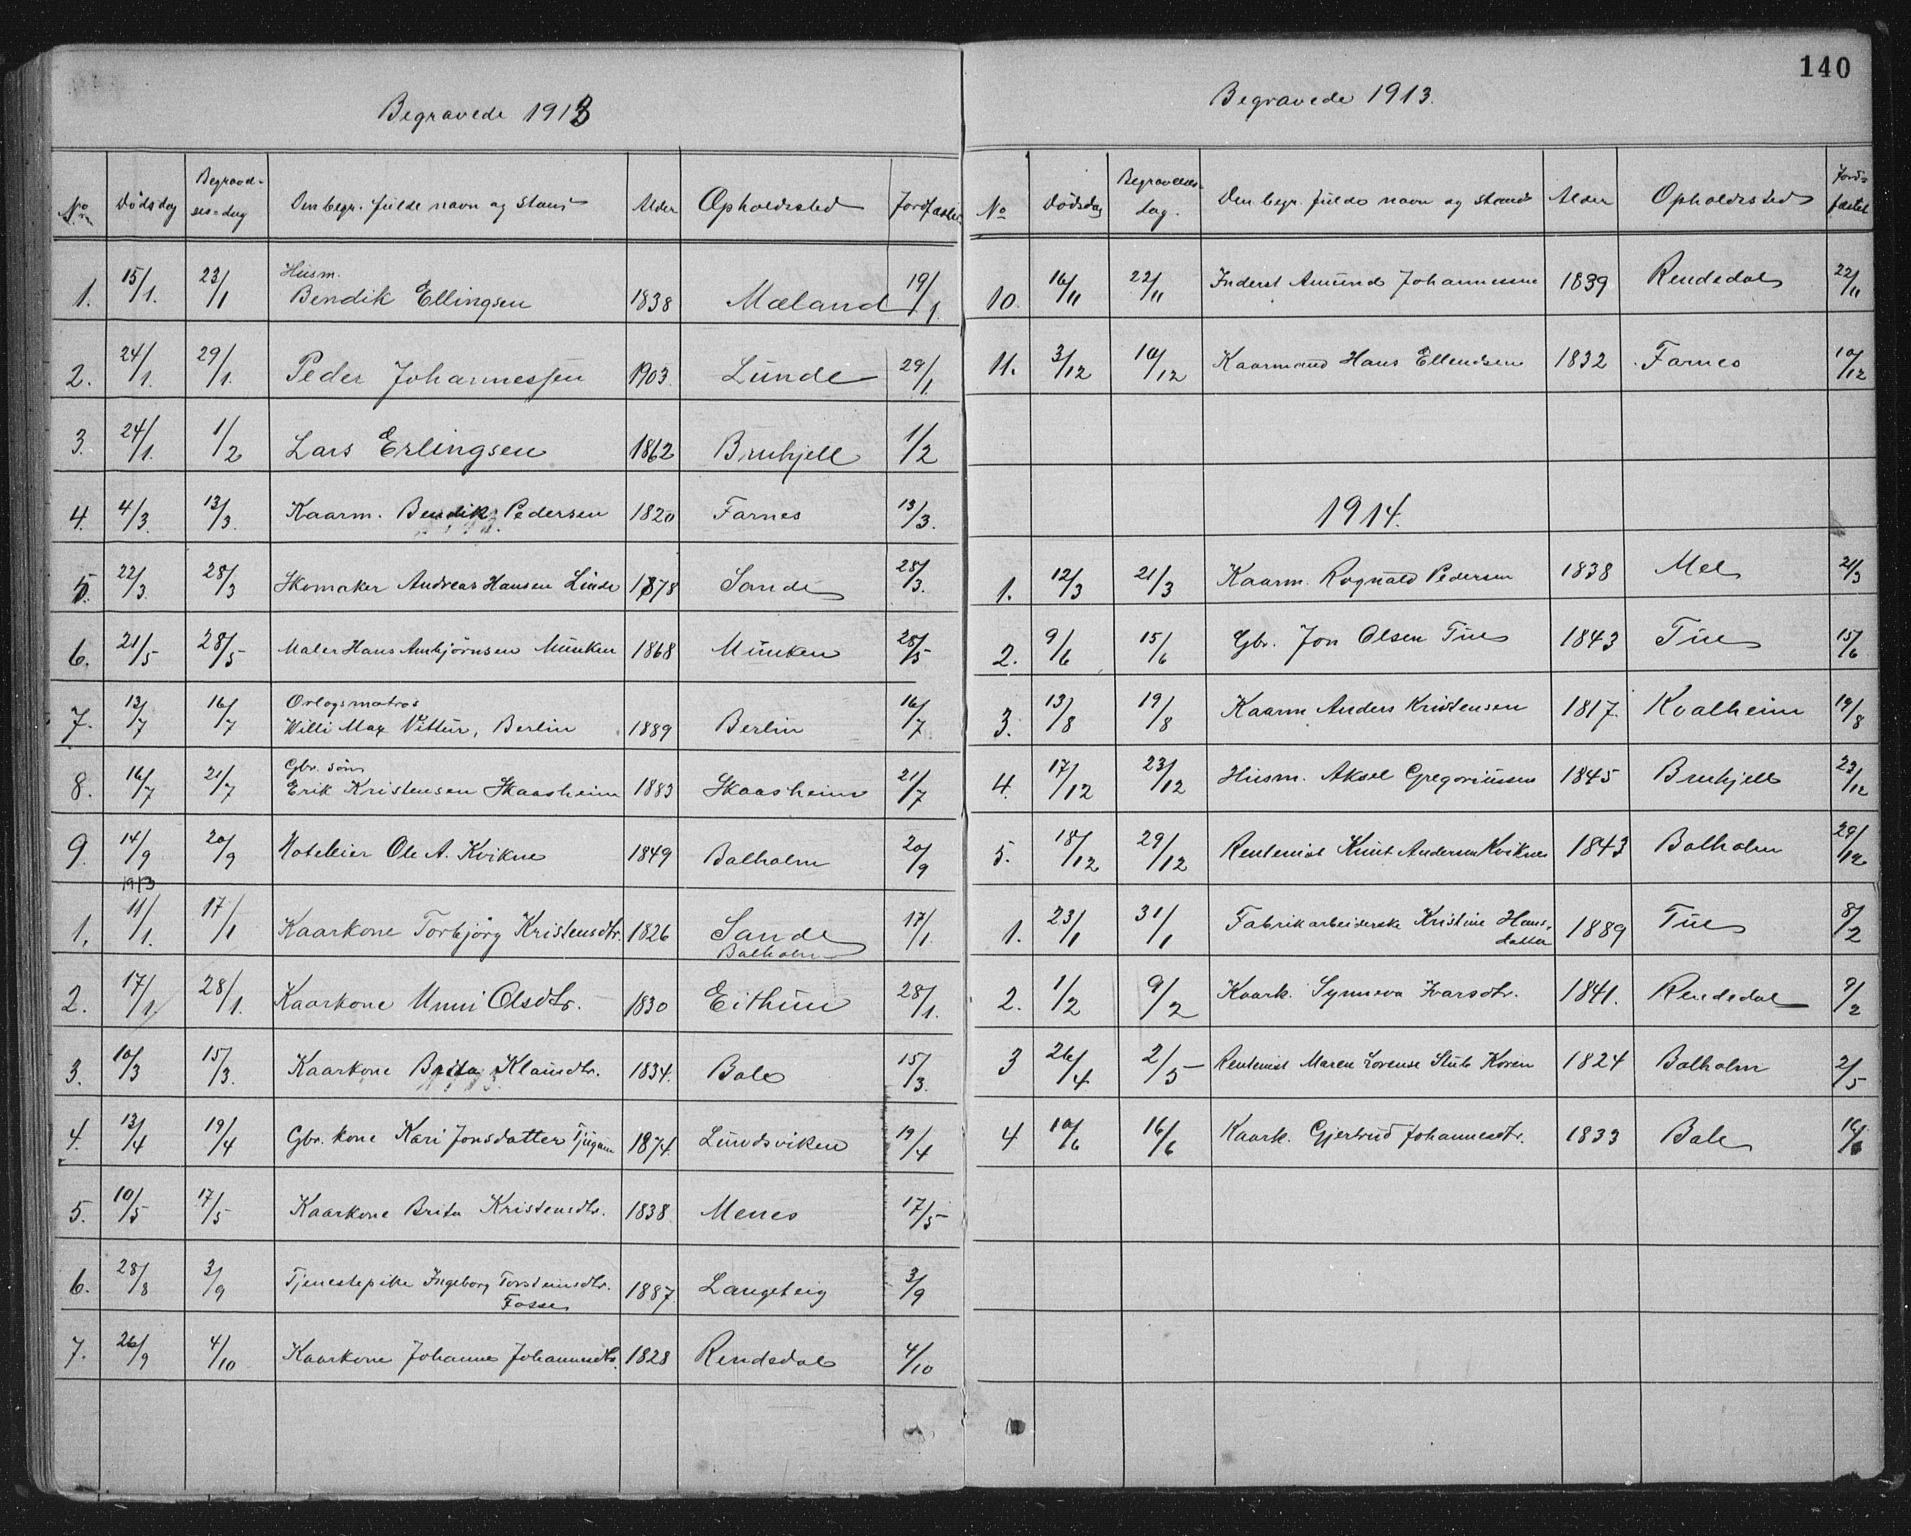 140
Begravede 1913
No Dødsdag Begravelsesdag Den begr. fulde navn og stand Alder Opholdssted Jordfæstet
1. 15/1. 23/1 Husm. Bendik Ellingsen 1838 Mæland 19/1.
2. 24/1. 29/1. Peder Johannessen 1903 Lunde 29/1.
3. 24/1. 1/2 Lars Erlingsen 1862 Bruhjell 1/2
4. 4/3. 13/3. Kaarm. Bendik Pedersen 1820 Farnes 13/3.
5. 22/3. 28/3 Skomaker Andreas Hansen Linde 1878 Sande 28/3.
6. 21/5 28/5 Maler Hans Anbjørnsen Munken 1868 Munken 28/5
7. 13/7 16/7 Orlogsmatros Willi Max Vittur, Berlin 1889 Berlin 16/7
8. 16/7 21/7 Gbr. søn Erik Kristensen Skaasheim 1883 Skaasheim 21/7
9. 14/9 20/9 Hoteleier Ole A. Kvikne 1849 Balholm 20/9
1913
1. 11/1. 17/1 Kaarkone Torbjørg Kristensdtr. 1826 Sande Balholm 17/1.
2. 17/1 28/1. Kaarkone Unni Olsdtr. 1830 Eithun 28/1.
3. 10/3 15/3. Kaarkone Brita Klausdtr. 1834. Bale 15/3.
4. 13/4 19/4 Gbr. kone Kari Jonsdatter Tjugum 1874. Lundsviken 19/4
5. 10/5 17/5 Kaarkone Brita Kristensdtr. 1838 Menes 17/5
6. 28/8 3/9 Tjenestepike Ingeborg Torsteinsdtr. Fosse 1887 Langeteig 3/9
7. 26/9 4/10 Kaarkone Johanne Johannesdtr. 1828 Rendedal 4/10
Begravede 1913.
No Dødsdag Begravelsesdag. Den begr. fulde navn og stand Alder Opholdssted Jordfæstet
10. 16/11 22/11 Inderst Amund Johannessen 1839 Rendedal 22/11
11. 3/12 10/12 Kaarmand Hans Ellendsen 1832 Farnes 10/12
1914.
1. 12/3 21/3 Kaarm. Rognald Pedersen 1838 Mel 21/3
2. 9/6 15/6 Gbr. Jon Olsen Tue 1843 Tue 15/6
3. 13/8 19/8 Kaarm Anders Kristensen 1817. Kvalheim 19/8
4. 17/12 23/12 Husm. Aksel Gregoriussen 1845 Bruhjell 23/12
5. 18/12 29/12 Rentenist Knut Andersen Kvikne 1843 Balholm 29/12
1. 23/1 31/1 Fabrikarbeiderske Kristine Hansdatter 1889 Tue 8/2
2. 1/2 9/2 Kaark. Synneva Ivarsdtr. 1841. Rendedal 9/2
3 26/4 2/5 Rentenist Maren Lorense Stub Koren 1824 Balholm 2/5
4 10/6 16/6 Kaark. Gjertrud Johannesdtr. 1833 Bale 16/6